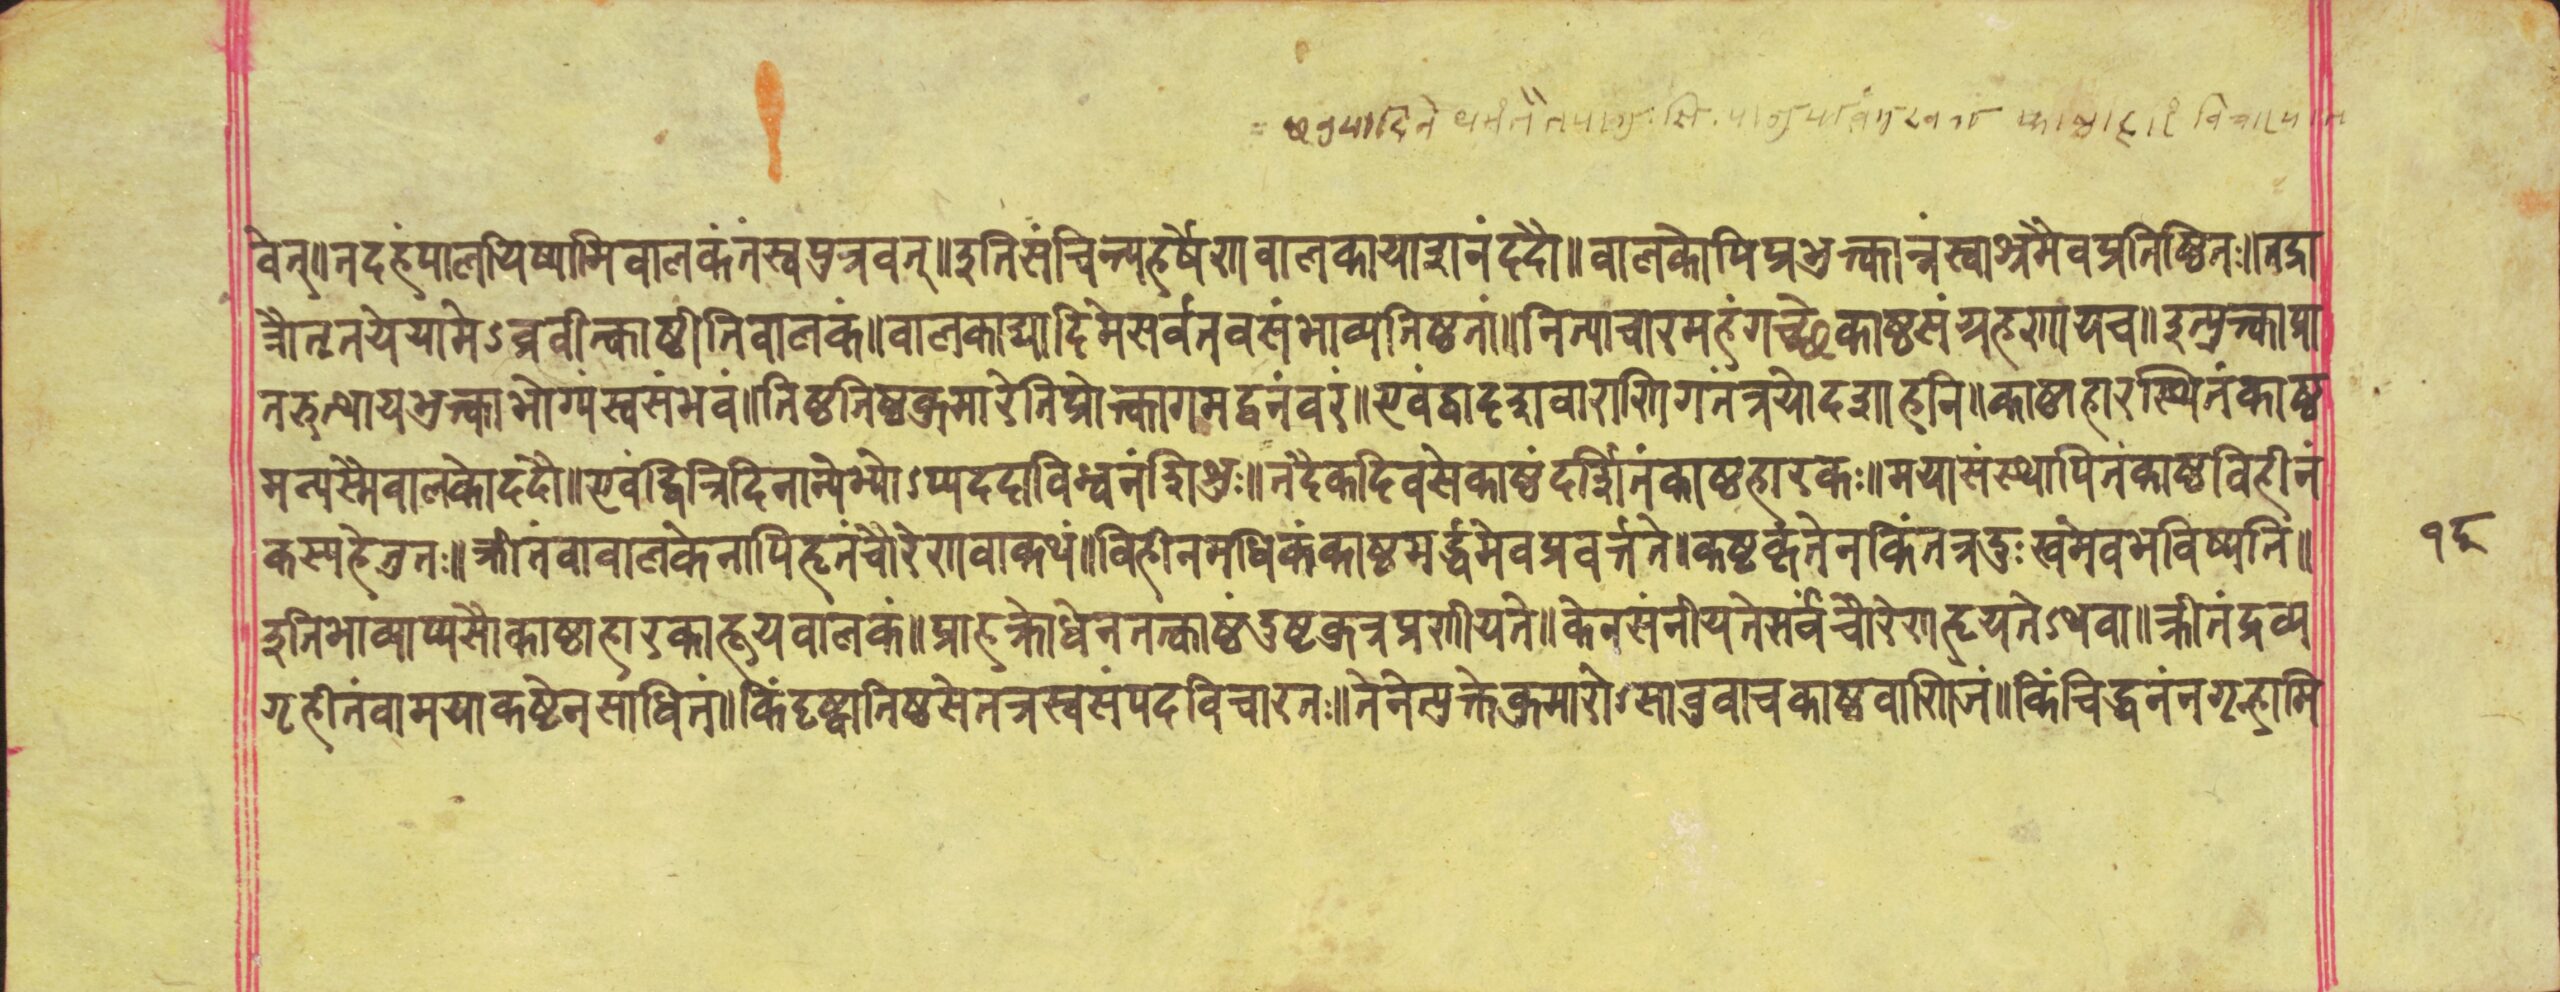 वेत्॥तदहंपालयिष्यामिवालकंतंस्वपुत्रवत्॥इतिसंचिन्त्यहर्षेणवालकायाशनंददौ॥वालकोपिप्रभुक्त्वान्नंस्वाश्रमैवप्रतिष्ठितः॥तद्रा
त्रौतृतयेयामेऽब्रवीत्काष्ठीतिवालकं॥वालकाद्यादिमेसर्वंतवसंभाव्यतिष्ठतां॥नित्याचारमहंगच्छेकाष्ठसंग्रहणायच॥इत्युक्त्वाप्रा
तरुत्थायभुक्त्वाभोग्यंस्वसंभवं॥तिष्ठतिष्ठकुमारेतिप्रोक्त्वागमद्वनंवरं॥एवंद्वादशवाराणिगतंत्रयोदशाहनि॥काष्ठाहारस्थितंकाष्ठ
मन्यस्मैवालकोददौ॥एवंद्वित्रिदिनान्येभ्योऽप्यददाविन्धनंशिशुः॥तदैकदिवसेकाष्ठंदर्शितंकाष्ठहारकः॥मयासंस्थापितंकाष्ठविहीनं
कस्यहेतुतः॥क्रीतंवावालकेनापिहृतंचौरेणवाकथं॥विहीनमधिकंकाष्ठमर्द्धमेवप्रवर्त्तते॥कष्टंकृतेनकिंतत्रदुःखमेवभविष्यति॥
इतिभाव्याप्यसौकाष्ठाहारकाहूयवालकं॥प्राहक्रोधेनतत्काष्ठंदुष्टकुत्रप्रणीयते॥केनसंनीयतेसर्वंचौरेणहृयतेऽथवा॥क्रीतंद्रव्य
गृहीतंवामयाकष्टेनसाधितं॥किंदृष्ट्वातिष्ठसेतत्रस्वसंपदविचारतः॥तेनेत्युक्तेकुमारोऽसावुवाचकाष्ठवाणिजं॥किंचिद्धनंनगृह्णामि
१६